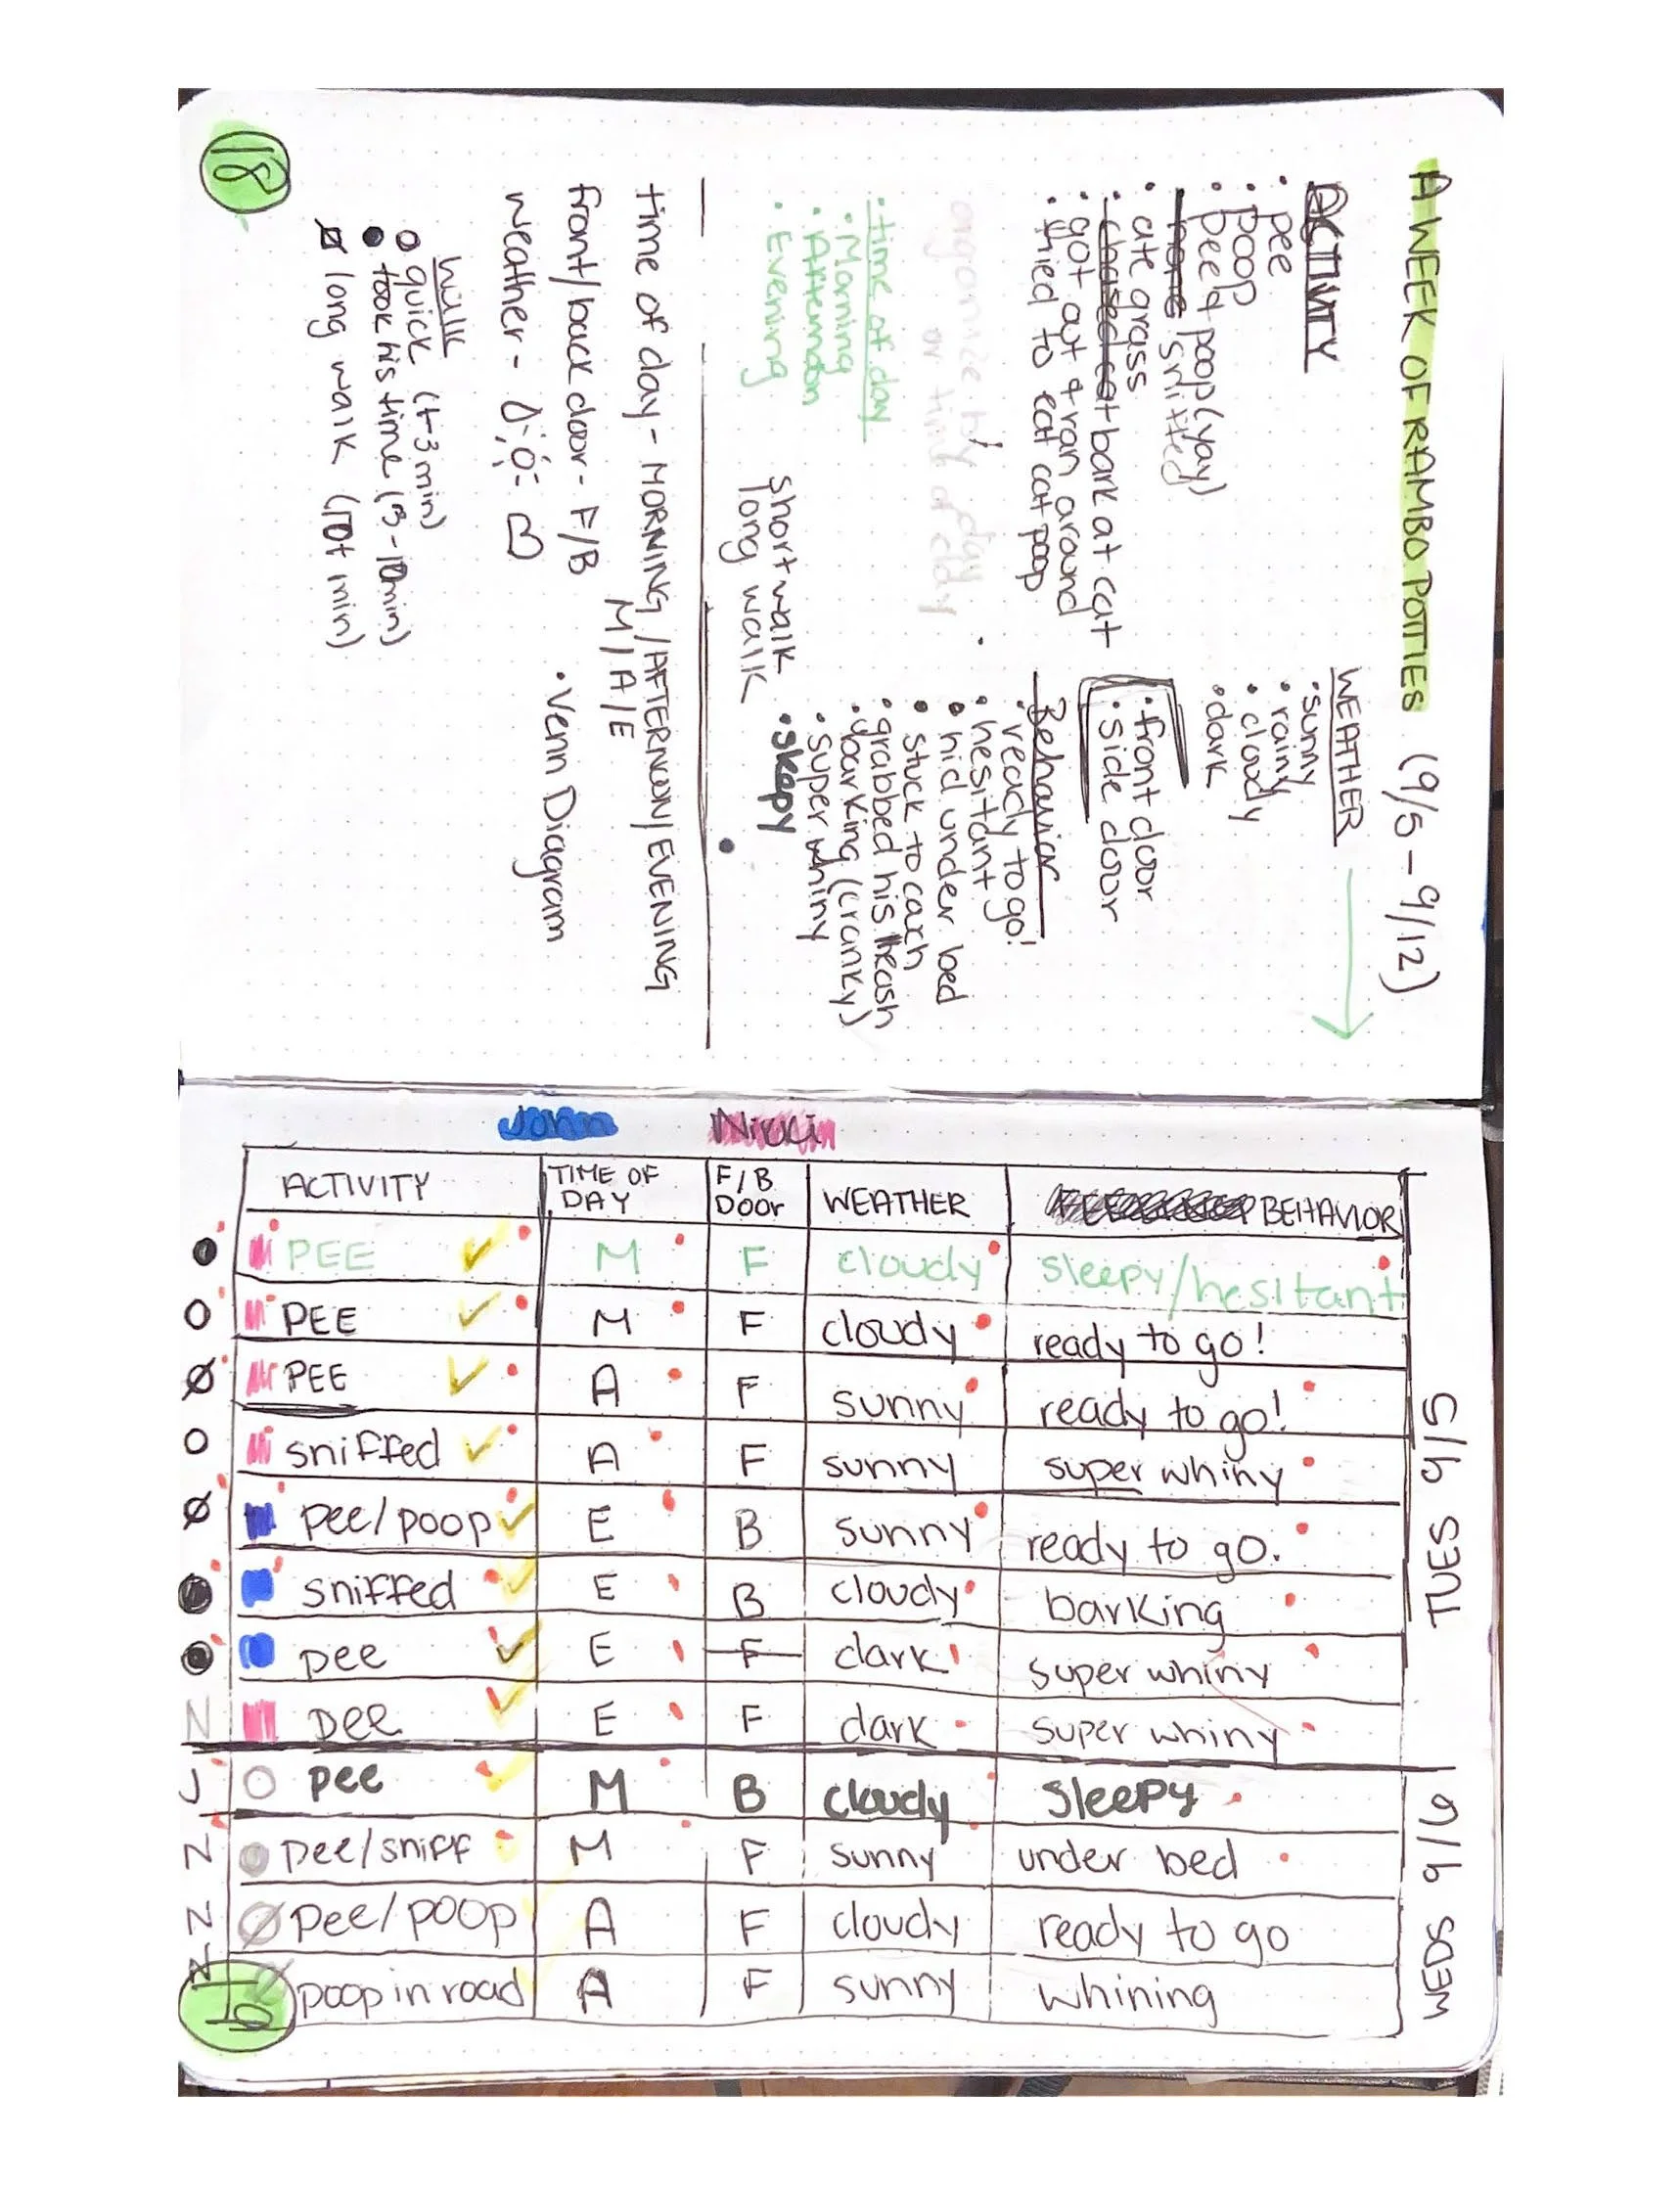 A WEEK OF RAMBO POTTIES (9/5 - 9/12)
ACTIVITY
• pee
• poop
• pee + poop (yay)
• none / sniffed
• ate grass
• chased cat + bark at cat
• got out + ran around
• tried to eat cat poop
WEATHER
• sunny
• rainy
• cloudy
• dark
• front door
• side door
Behavior
• ready to go!
• hesitant
• hid under bed
• stuck to couch
• grabbed his leash
• barking (cranky)
• super whiny
• sleepy
organize by day
or time of day
• time of day
• Morning
• Afternoon
• Evening
short walk
long walk
time of day - MORNING / AFTERNOON / EVENING
M / A / E
front/back door - F/B
weather -
• Venn Diagram
walk
quick (1-3 min)
took his time (3-10min)
long walk (10+ min)
18
John Nicci
ACTIVITY TIME OF DAY F/B Door WEATHER BEHAVIOR
PEE M F cloudy sleepy/hesitant
PEE M F cloudy ready to go!
PEE A F sunny ready to go!
sniffed A F sunny super whiny
pee/poop E B sunny ready to go.
sniffed E B cloudy barking
pee E F dark super whiny
N pee E F dark super whiny
J pee M B cloudy sleepy
N pee/sniff M F sunny under bed
N pee/poop A F cloudy ready to go
N poop in road A F sunny whining
TUES 9/5
WEDS 9/6
19